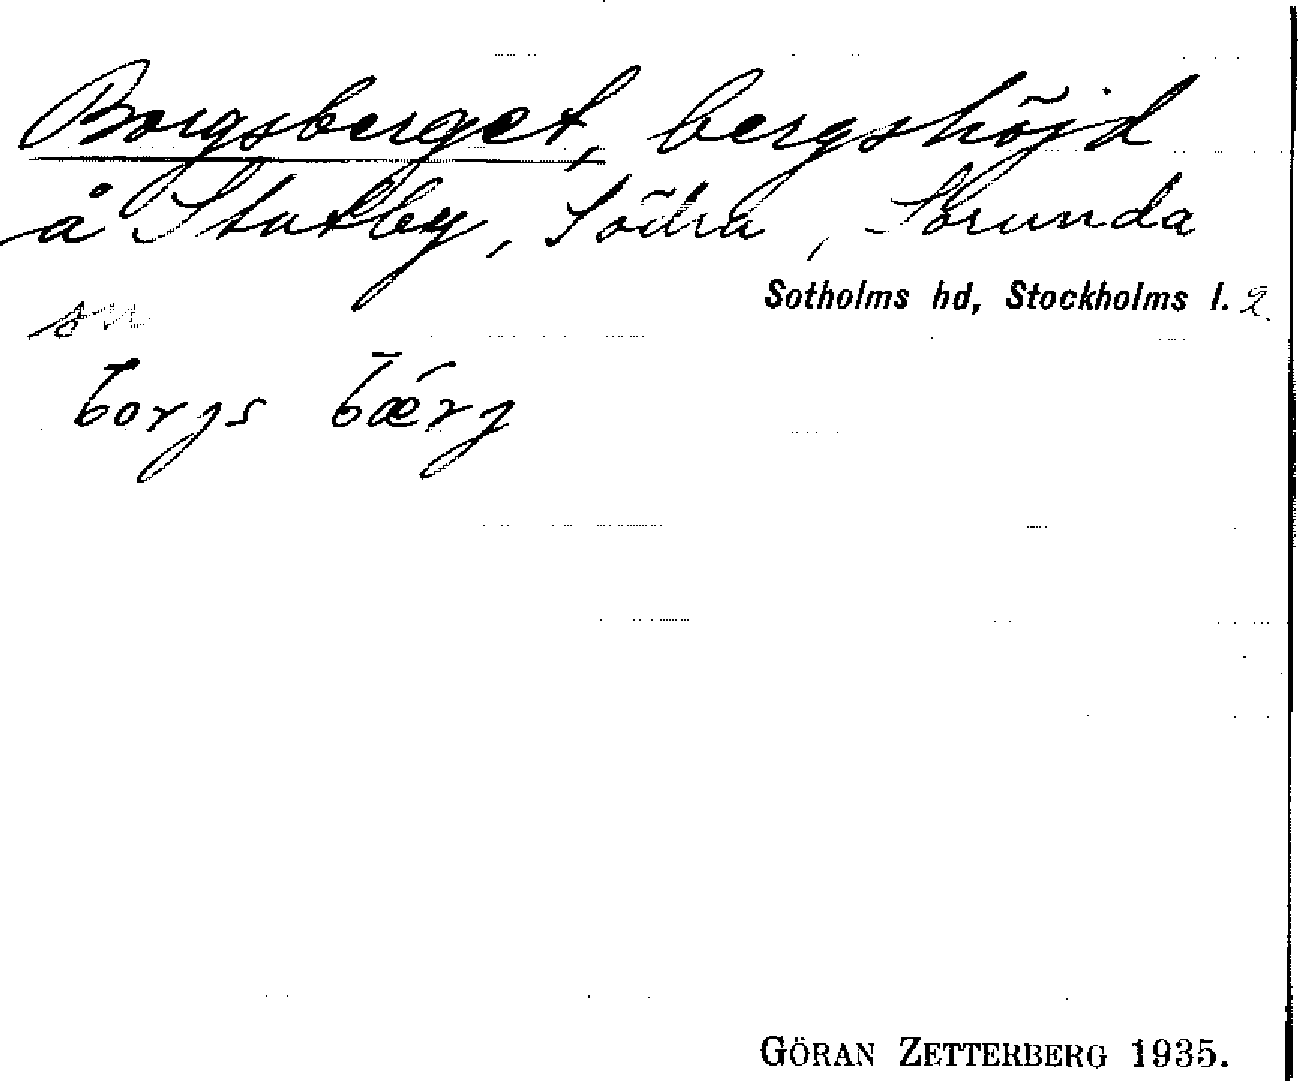 Borgsberget, bergshöjd
å Stutby, Södra, Sorunda
sn
Sotholms hd, Stockholms l. 2.
borgs bærg
GÖRAN ZETTERBERG 1935.